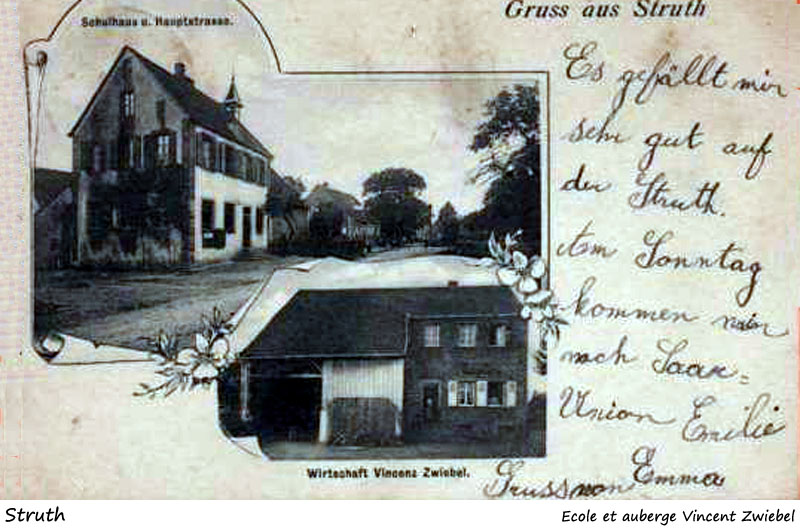 Schulhaus u. Hauptstrasse.
Gruss aus Struth
Es gefällt mir
sehr gut auf
der Struth.
Am Sonntag
kommen wir
nach Saar-
Union Emilie
Emma
Gruss von
Wirtschaft Vincenz Zwiebel.
Struth
Ecole et auberge Vincent Zwiebel